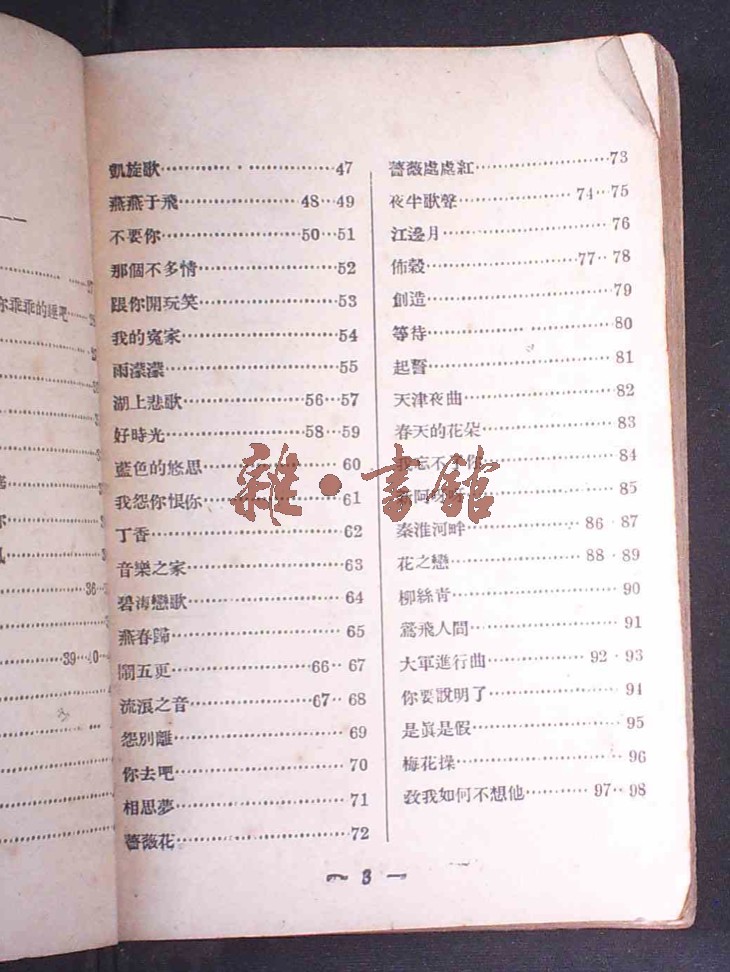 凱旋歌 47
燕燕于飛 48 49
不要你 50 51
那個不多情 52
跟你開玩笑 53
我的寃家 54
雨濛濛 55
湖上悲歌 56 57
好時光 58 59
藍色的悠思 60
我怨你恨你 61
丁香 62
音樂之家 63
碧海戀歌 64
燕春歸 65
鬧五更 66 67
流浪之音 67 68
怨別離 69
你去吧 70
相思夢 71
薔薇花 72
薔薇處處紅 73
夜半歌聲 74 75
江邊月 76
佈穀 77 78
創造 79
等待 80
起誓 81
天津夜曲 82
春天的花朵 83
我忘不了你 84
85
秦淮河畔 86 87
花之戀 88 89
柳絲青 90
鶯飛人間 91
大軍進行曲 92 93
你要說明了 94
是眞是假 95
梅花操 96
敎我如何不想他 97 98
3
你乖乖的睡吧
36
39 40
雜·書館